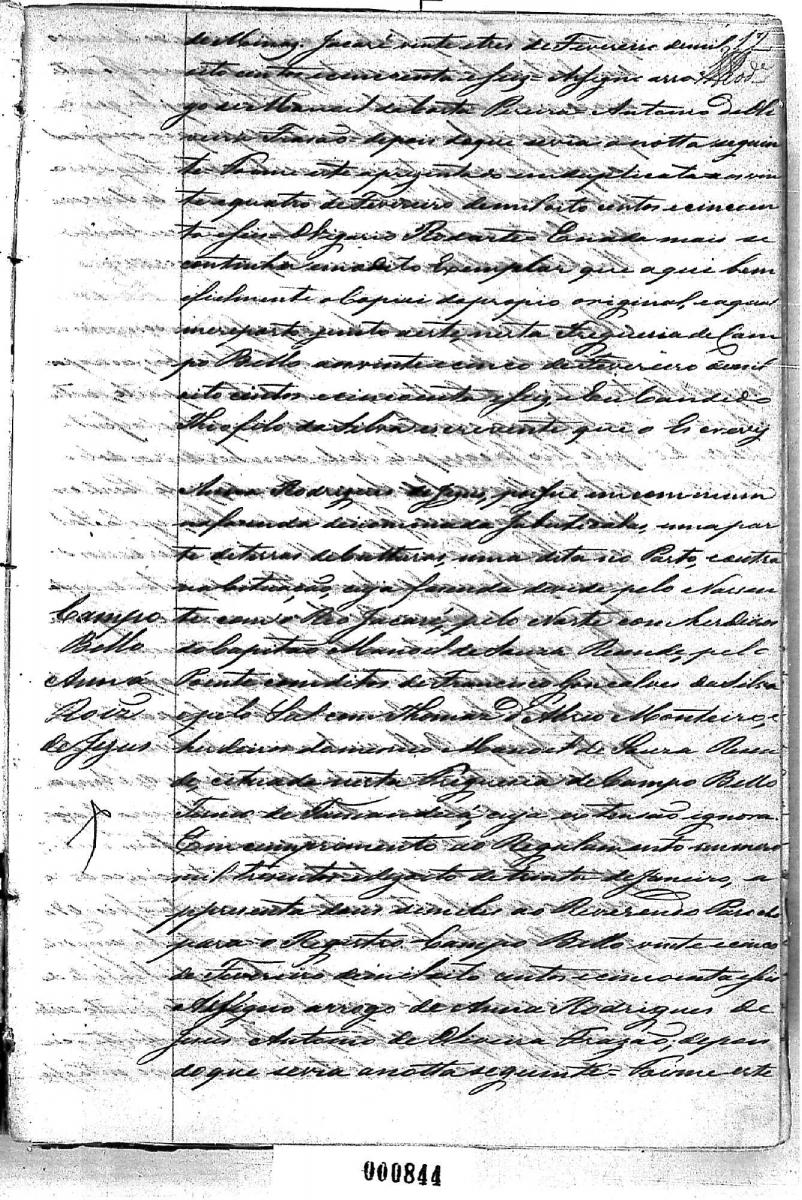 17
de Minas. Jacaré vinte e tres de Fevereiro de mil
oito centos e cincoenta e seis = Assigno arrogo
go de Manoel da Costa Pereira Antonio de Oli
veira Frazão depois do que sevia a notta seguin
te Foime este aprezentado em duplicata aos vin
te e quatro de Fevereiro de mil oito centos e cincoen
ta e seis O Vigario Enada mais se
continha em o dito Exemplar que aqui bem
e fielmente o Copiei do propio original, a qual
me reporto junto a este, nesta Freguesia de Cam
po Bello aos vinte e cinco de Fevereiro de mil
oito centos e cincoenta e seis Eu Candido
Theofilo da Silva escrevente que o Escrevy
Campo
Bello
Anna
Roiz.
de Jezus
Anna Rodrigues de Jezus, possue em commum
na fazenda denominada uma par
te de terras de Culturas, uma dita no Pasto, e outra
na cituação, cuja fazenda devide pelo Nascen
te com o Rio Jacaré, pelo Norte com herdeiros
do Capitão Manoel de Souza Rezende, pelo
Poente com ditos de Francisco Gonçalves da Silva
e pelo Sul com Thomaz d'Abreo Monteiro, e
herdeiros do mesmo Manoel de Souza Rezen
de, cituada nesta Freguesia de Campo Bello
Termo de Tamanduá, cuja extensão ignora.
Em cumprimento ao Regulamento numero
mil trezentos e dezoito de trinta de Janeiro, a
ppresenta dous simeles ao Reverendo Parocho
para o Registro Campo Bello vinte e cinco
de Fevereiro de mil oito centos e cincoenta e seis
= Assigno arrogo de Anna Rodrigues de
Jesus Antonio de Oliveira Frazão, depois
do que sevia a notta seguinte = Foime este
000844